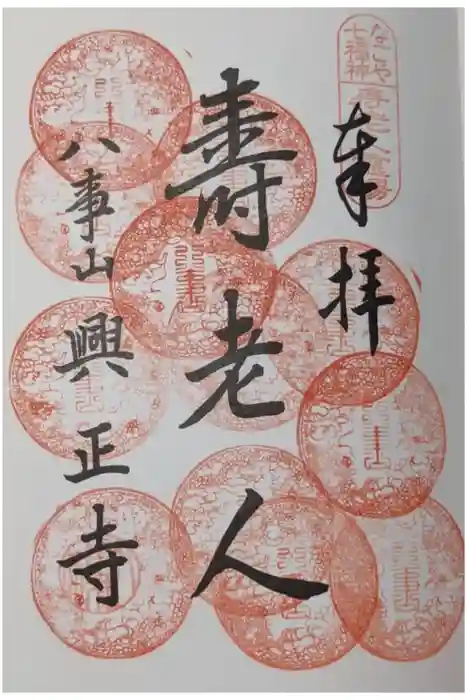 なごや
七福神
壽老人霊場
奉拝
壽老人
八事山興正寺